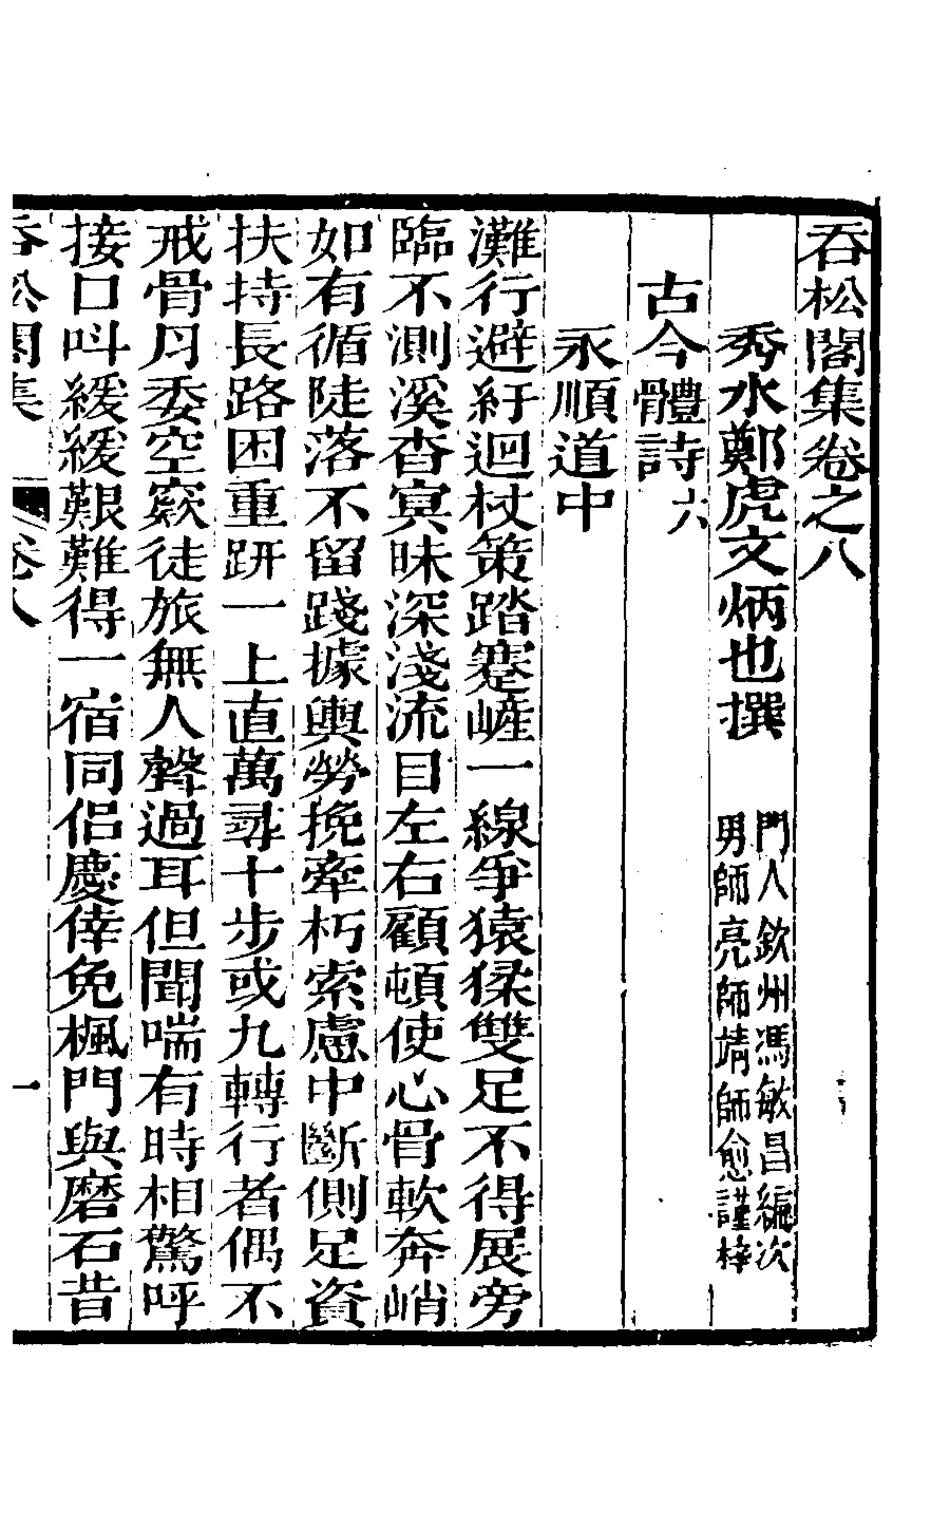 吞松閣集卷之八
秀水鄭虎文炳也撰
門人欽州馮敏昌編次
男師亮師靖師愈謹梓
古今體詩六
永順道中
灘行避紆迴杖策踏蹇嵼一線爭猿猱雙足不得展旁
臨不測溪杳冥昧深淺流目左右顧頓使心骨軟奔峭
如有循陡落不留踐據輿勞挽牽朽索慮中斷側足資
扶持長路困重趼一上直萬尋十步或九轉行者偶不
戒骨肉委空窾徒旅無人聲過耳但聞喘有時相驚呼
接口呌緩緩艱難得一宿同侶慶倖免楓門與磨石昔
吞松閣集
卷八
一